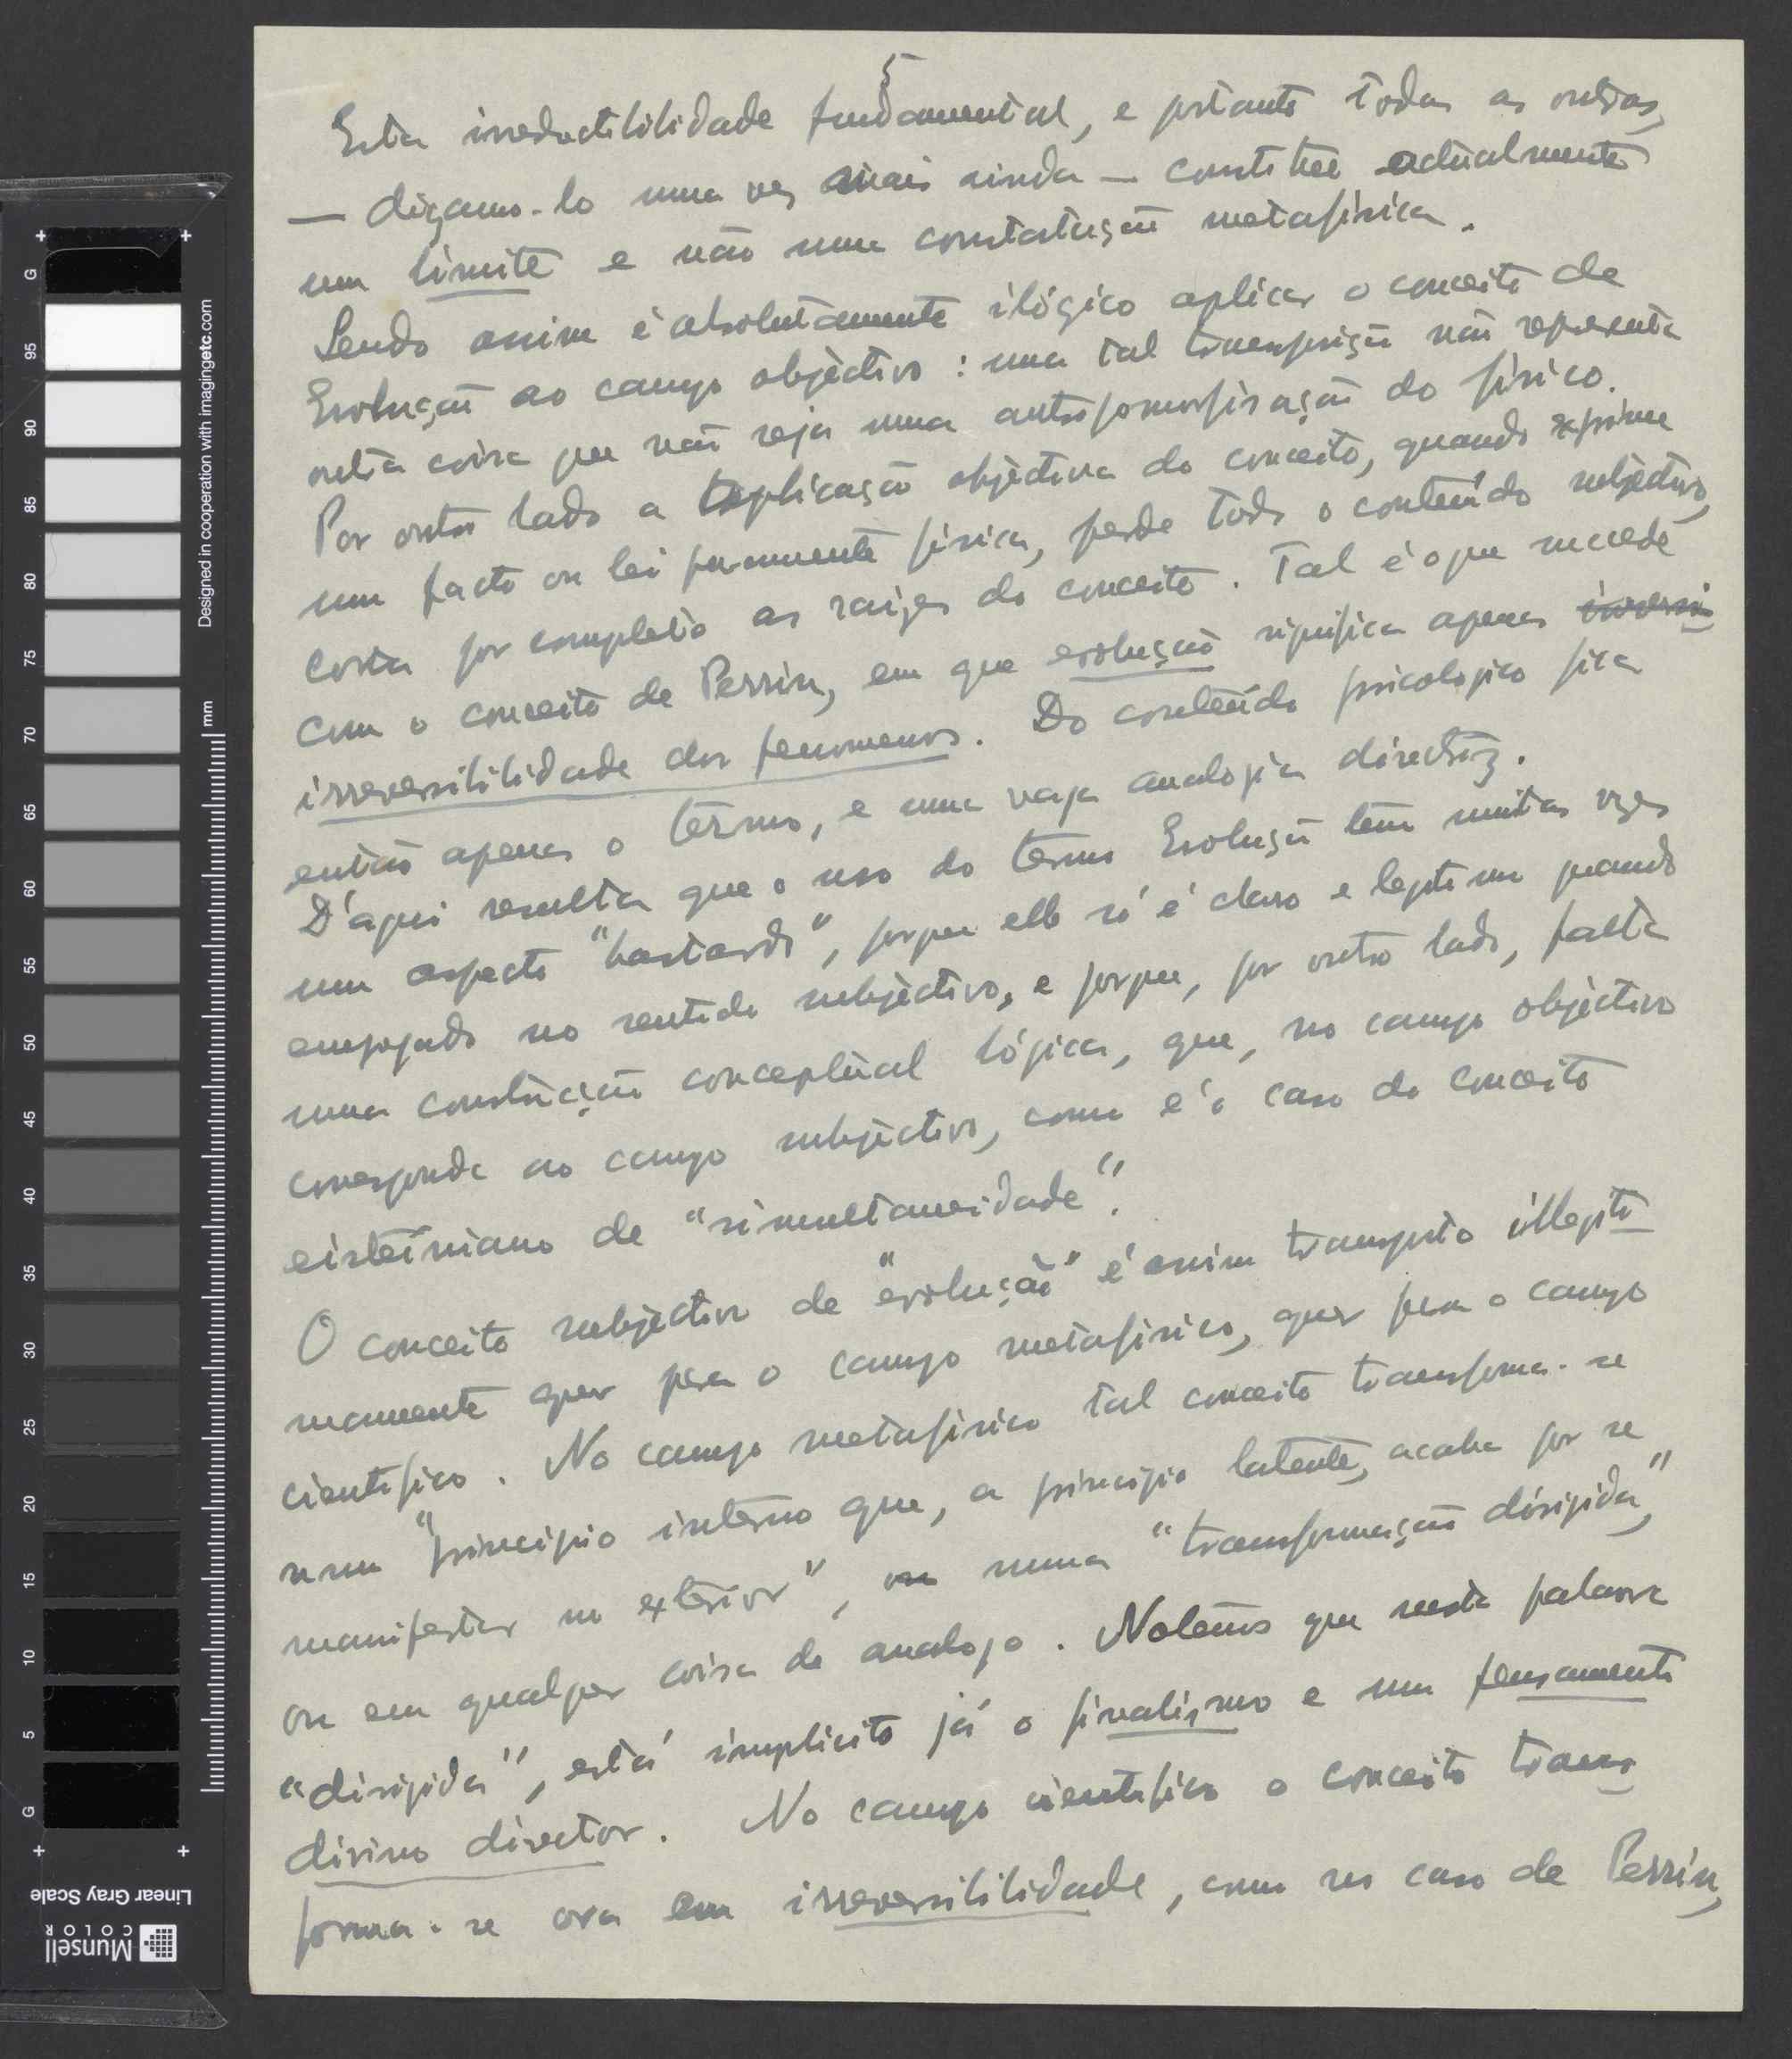 5
Esta irreductibilidade fundamental, e portanto todas as outras,
— digamo-lo uma vez mais ainda — constitue actualmente
um limite e não uma constatação metafísica.
Sendo assim é absolutamente ilógico aplicar o conceito de
Evolução ao campo objèctivo : uma tal transposição não representa
outra coisa que não seja uma antropomorfisação do físico.
Por outro lado a aplicação objèctiva do conceito, quando exprime
um facto ou lei puramente física, perde todo o conteúdo subjèctivo,
corta por completo as raizes do conceito. Tal é o que sucede
com o conceito de Perrin, em que evolução significa apenas inversi-
irreversibilidade dos fenomenos. Do conteúdo psicologico fica
então apenas o termo, e uma vaga analogia directriz.
D'aqui resulta que o uso do termo Evolução tem muitas vezes
um aspecto "bastardo", porque elle só é claro e legitimo quando
empregado no sentido subjèctivo, e porque, por outro lado, falta
uma construcção conceptual lógica, que, no campo objèctivo
corresponda ao campo subjèctivo, como é o caso do conceito
eisteiniano de "simultaneidade".
O conceito subjèctivo de "evolução" é assim transposto illegiti-
mamente quer para o campo metafísico, quer para o campo
cientifico. No campo metafísico tal conceito transforma-se
num "principio interno que, a principio latente, acaba por se
manifestar no exterior", ou numa "transformação dirigida,"
ou em qualquer coisa de analogo. Notemos que nesta palavra
"dirigida", está implicito já o finalismo e um pensamento
divino director. No campo cientifico o conceito trans-
forma-se ora em irreversibilidade, como no caso de Perrin,
Designed in cooperation with imagingetc.com
mm
G 95 90 85 80 75 70 65 60 55 50 45 40 35 30 25 20 15 10 5 G
Linear Gray Scale
Munsell
COLOR